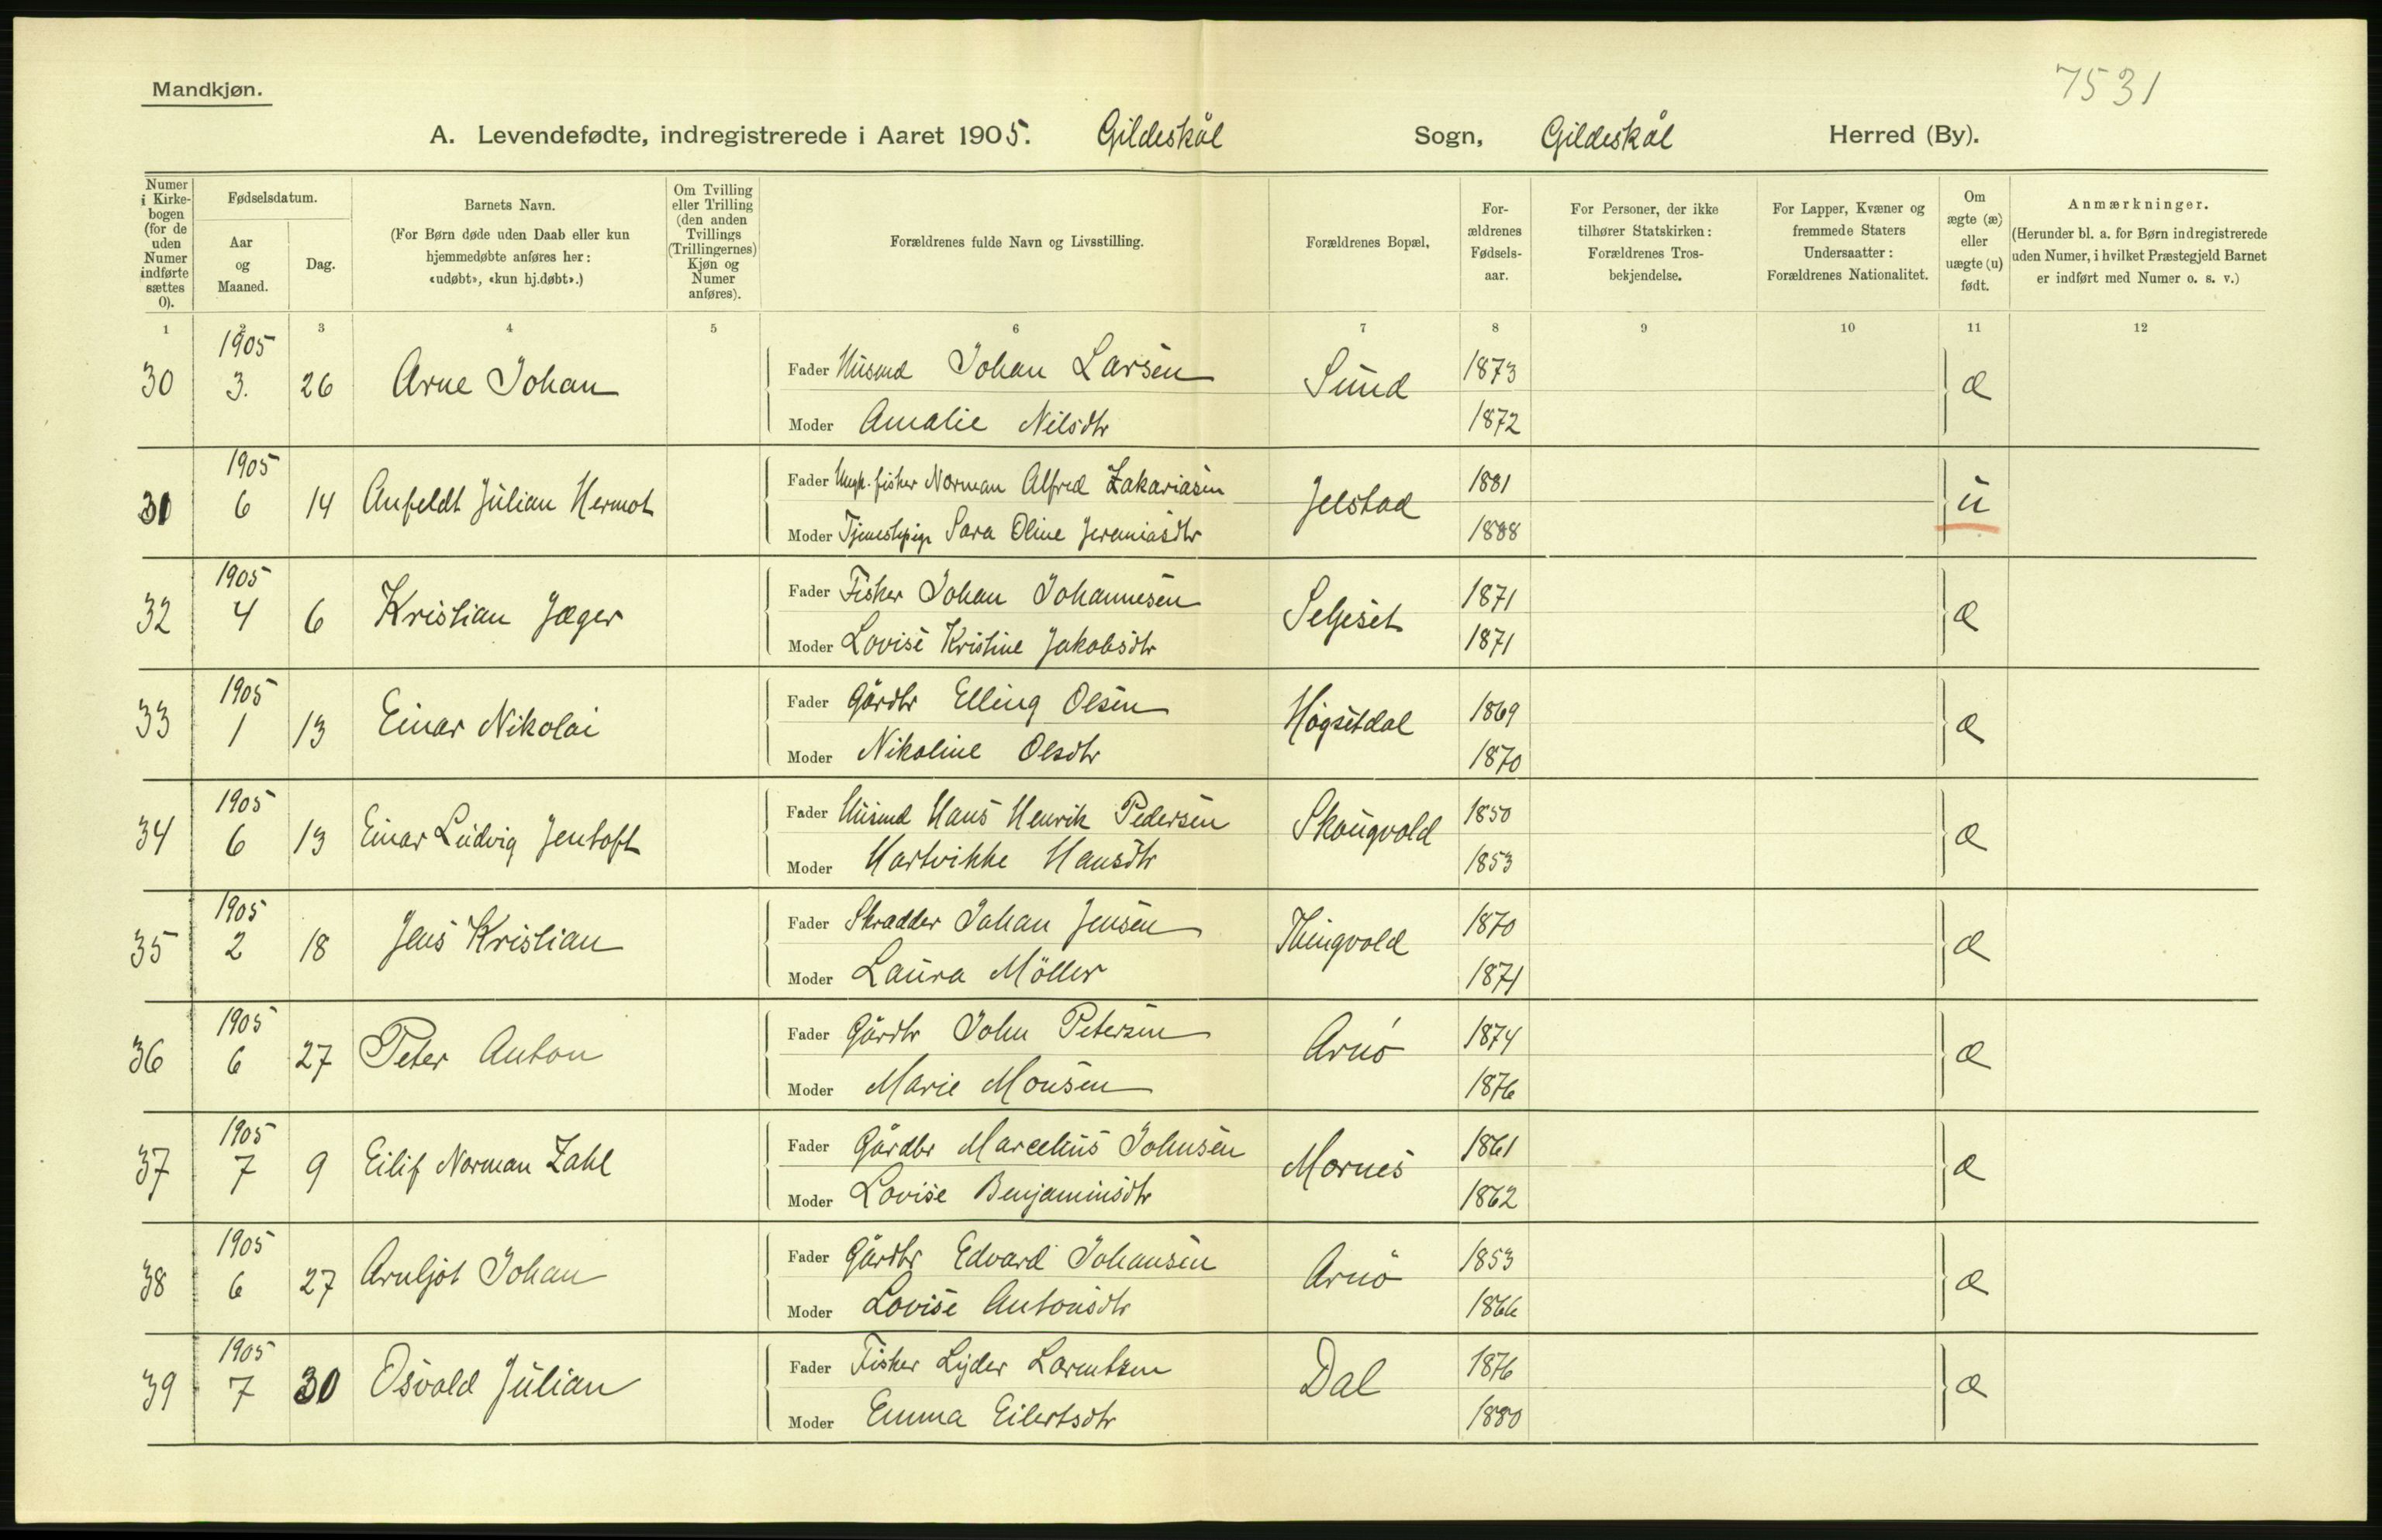 Mandkjøn.
7531
A. Levendefødte, indregistrerede i Aaret 1905. Gildeskål Sogn, Gildeskål Herred (By).
Numer i Kirkebogen (for de uden Numer indførte sættes 0).
Fødselsdatum.
Aar og Maaned.
Dag.
Barnets Navn.
(For Børn døde uden Daab eller kun hjemmedøbte anføres her: «udøbt», «kun hj.døbt».)
Om Tvilling eller Trilling (den anden Tvillings (Trillingernes) Kjøn og Numer anføres).
Forældrenes fulde Navn og Livsstilling.
Forældrenes Bopæl,
Forældrenes Fødselsaar.
For Personer, der ikke tilhører Statskirken: Forældrenes Trosbekjendelse.
For Lapper, Kvæner og fremmede Staters Undersaatter: Forældrenes Nationalitet.
Om ægte (æ) eller uægte (u) født.
Anmærkninger.
(Herunder bl. a. for Børn indregistrerede uden Numer, i hvilket Præstegjeld Barnet er indført med Numer o. s. v.)
1 2 3 4 5 6 7 8 9 10 11 12
30 1905 3. 26 Arne Johan Fader Husmd Johan Larsen Sund 1873 æ
Moder Amalie Nilsdtr 1872
31 1905 6 14 Anfeldt Julian Hermot Fader Ungk. fisker Norman Alfred Zakariasen Jelstad 1881 u
Moder Tjenestepige Sara Oline Jeremiasdtr 1888
32 1905 4 6 Kristian Jæger Fader Fisker Johan Johannesen Seljeset 1871 æ
Moder Lovise Kristine Jakobsdtr 1871
33 1905 1 13 Einar Nikolai Fader Gårdbr Elling Olsen Høgsetdal 1869 æ
Moder Nikoline Olsdtr 1870
34 1905 6 13 Einar Ludvig Jentoft Fader Husmd Hans Henrik Pedersen Skougvold 1850 æ
Moder Hartvikke Hansdtr 1853
35 1905 2 18 Jens Kristian Fader Skrædder Johan Jensen Thingvold 1870 æ
Moder Laura Möller 1871
36 1905 6 27 Peter Anton Fader Gårdbr John Petersen Arnö 1874 æ
Moder Marie Monsen 1876
37 1905 7 9 Eilif Norman Zahl Fader Gårdbr Marcelius Johnsen Mornes 1861 æ
Moder Lovise Benjaminsdtr 1862
38 1905 6 27 Arnljot Johan Fader Gårdbr Edvard Johansen Arnö 1853 æ
Moder Lovise Antonsdtr 1866
39 1905 7 30 Osvald Julian Fader Fisker Lyder Lorentzen Dal 1876 æ
Moder Emma Eilertsdtr 1880